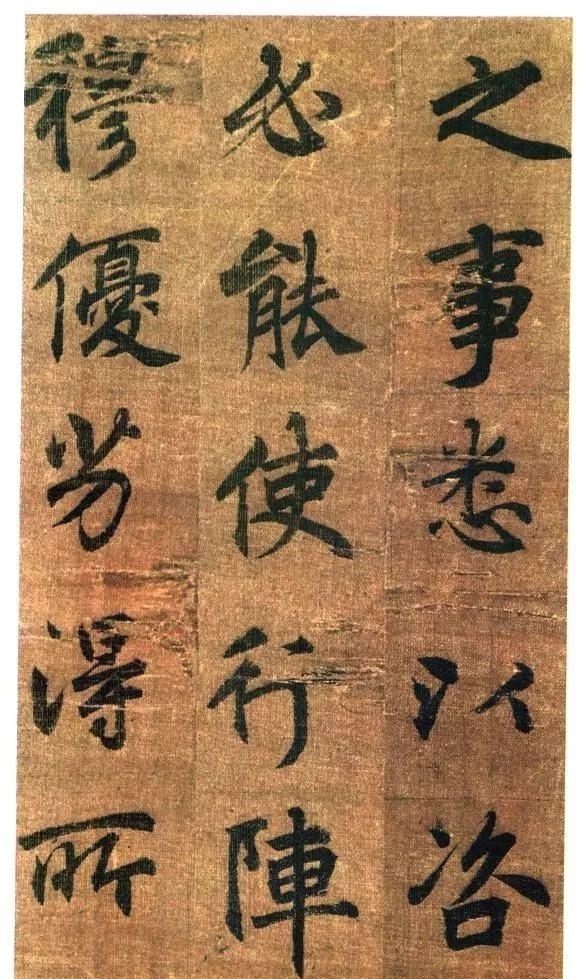 之事悉以咨
必能使行陣
穆優劣得所